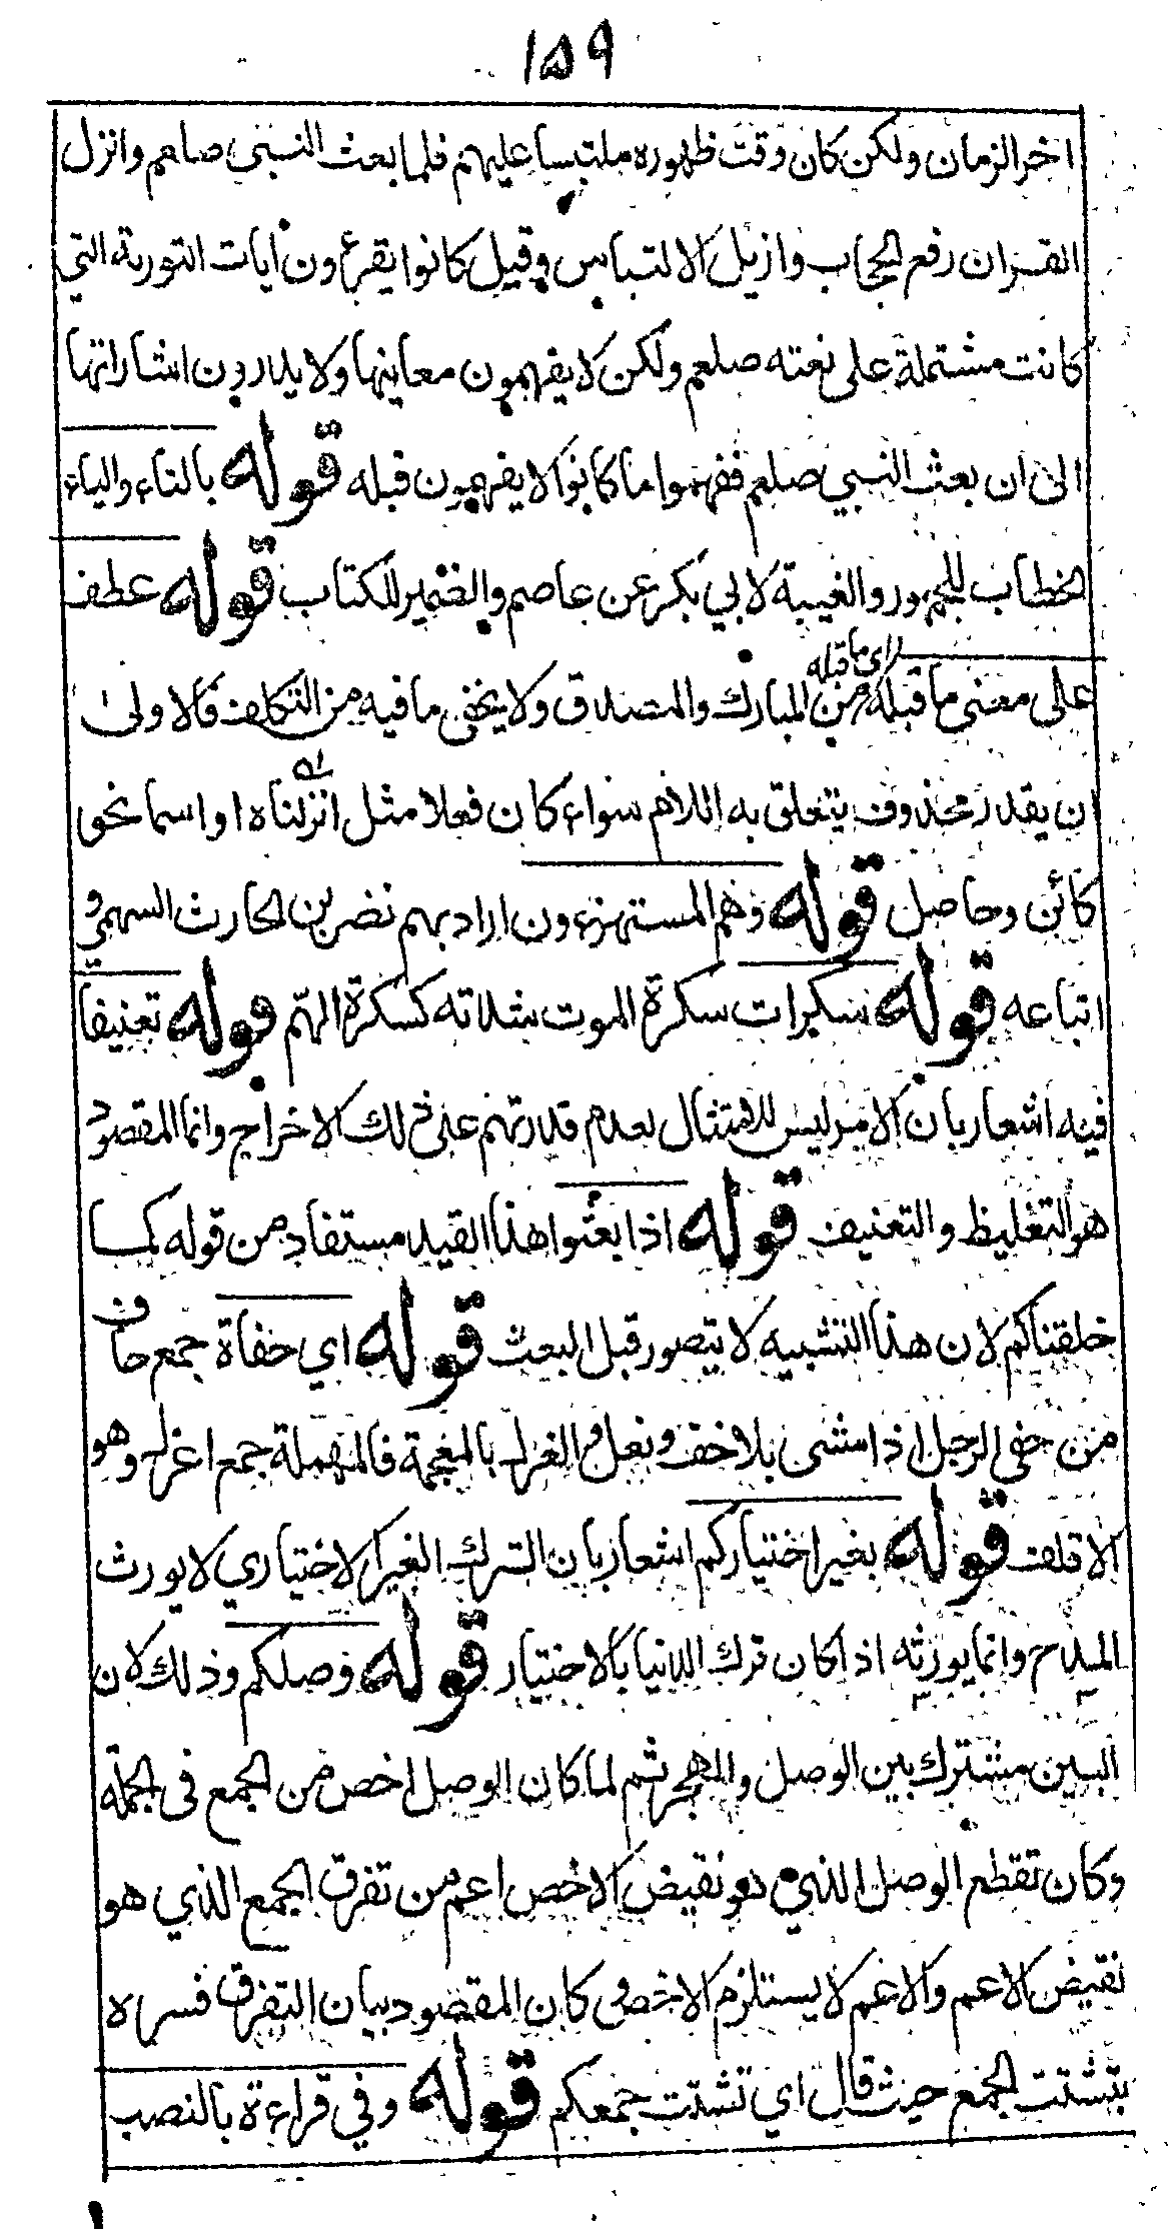 ١٥٩
اخر الزمان ولكن كان وقت ظهوره ملتبسا عليهم فلما بعث النبي صلعم وانزل
القران رفع الحجاب وازيل الالتباس وقيل كانوا يقرءون ايات التورية التي
كانت مشتملة على نعته صلعم ولكن لا يفهمون معاينها ولا يدرون اشاراتها
الى ان بعث النبي صلعم ففهموا ما كانوا لا يفهمون قبله قوله بالتاء والياء
الخطاب للجمهور والغيبة لابي بكر عن عاصم والضمير للكتاب قوله عطف
اي ما قبله
على معنى ما قبله من المبارك والمصدق ولا يخفى ما فيه من التكلف فالاولى
ان يقدر محذوف يتعلق به اللام سواء كان فعلا مثل انزلناه او اسما نحو
كائن وحاصل قوله وهم المستهزءون اراد بهم نضر بن الحارث السهمي و
اتباعه قوله سكرات سكرة الموت شداته كسكرة الهم قوله تعنيفا
فيه اشعار بان الامر ليس للامتثال لعدم قدرتهم على ذلك الاخراج وانما المقصود
هو التغليظ والتعنيف قوله اذا بعثوا هذا القيد مستفاد من قوله كما
خلقناكم لان هذا التشبيه لا يتصور قبل البعث قوله اي حفاة جمع حاف
من حفي الرجل اذا مشى بلا خف ونعل والغرل بالمعجمة فالمهملة جمع اغرل وهو
الاقلف قوله بغير اختياركم اشعار بان الترك الغير الاختياري لا يورث
المدح وانما يورثه اذا كان ترك الدنيا بالاختيار قوله وصلكم وذلك لان
البين مشترك بين الوصل والهجر ثم لما كان الوصل اخص من الجمع في الجملة
وكان تقطع الوصل الذي هو نقيض الاخص اعم من تفرق الجمع الذي هو
نقيض الاعم والاعم لا يستلزم الاخص كان المقصود بيان التفرق فسره
بتشتت الجمع حيث قال اي تشتت جمعكم قوله وفي قراءة بالنصب